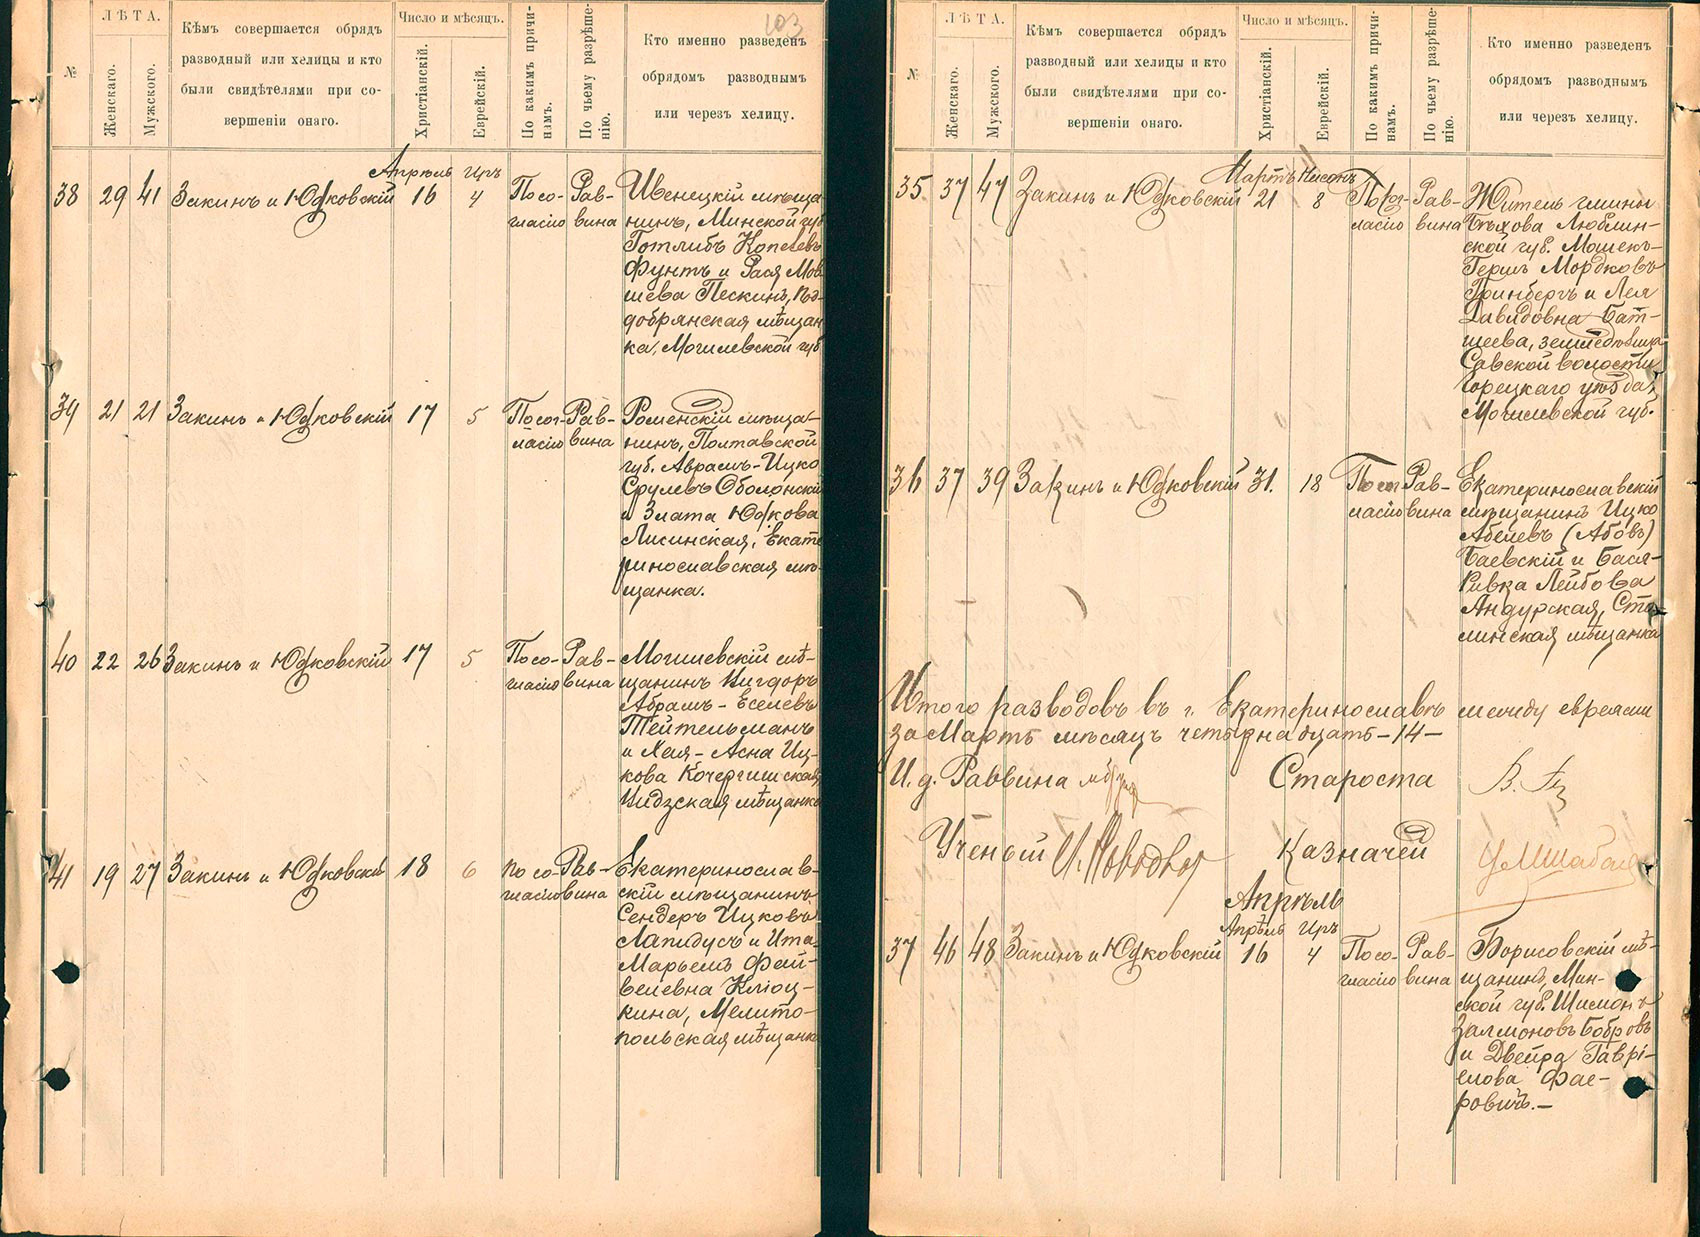 103
ЛѢТА.
Число и мѣсяцъ.
№
Женскаго.
Мужского.
Кѣмъ совершается обрядъ
разводный или хелицы и кто
были свидѣтелями при со-
вершеніи онаго.
Христіанскій.
Еврейскій.
По какимъ причи-
намъ.
По чьему разрѣше-
нію.
Кто именно разведенъ
обрядомъ разводнымъ
или черезъ хелицу.
Апрѣль Иръ
38 29 41 Закинъ и Юдковскій 16 4 По со- Рав- Ивенецкій мѣща
гласію вина нинъ, Минской губ
Готлибъ Копелевъ
Фунтъ и Рася Мов
шева Пескинъ,
добрянская мѣщан
ка, Могилевской губ
39 21 21 Закинъ и Юдковскій 17 5 По сог- Рав- Роменскій мѣща-
ласію вина нинъ, Полтавской
губ. Аврамъ-Ицко
Срулевъ Оболонскій
и Злата Юдкова
Лисинская, Екате
ринославская мѣ-
щанка.
40 22 26 Закинъ и Юдковскій 17 5 По со- Рав- Могилевскій мѣ-
гласію вина щанинъ Вигдоръ
Абрамъ-Еселевъ
Тейтельманъ
и Хая-Асна Иц-
кова Кочергинская
Видзская мѣщанка
41 19 27 Закинъ и Юдковскій 18 6 По со- Рав- Екатеринослав-
гласію вина скій мѣщанинъ
Сендеръ Ицковъ
Лапидусъ и Ита-
Марьемъ Фай-
велевна Кліоц-
кина, Мелито-
польская мѣщанка
ЛѢТА.
Число и мѣсяцъ.
№
Женскаго.
Мужского.
Кѣмъ совершается обрядъ
разводный или хелицы и кто
были свидѣтелями при со-
вершеніи онаго.
Христіанскій.
Еврейскій.
По какимъ причи-
намъ.
По чьему разрѣше-
нію.
Кто именно разведенъ
обрядомъ разводнымъ
или черезъ хелицу.
Мартъ Нисонъ
35 37 47 Закинъ и Юдковскій 21 8 По сог- Рав- Житель гмины
ласію вина Бѣхова Люблин-
ской губ. Мошекъ-
Гершъ Мордковъ
Гринбергъ и Лея
Давидовна Бат-
шева, земледѣлица
Савской волости
Горецкаго уѣзда,
Могилевской губ.
36 37 39 Закинъ и Юдковскій 31. 18 По сог- Рав- Екатеринославскій
ласію вина мѣщанинъ Ицко
Абелевъ (Абовъ)
Баевскій и Бася-
Ривка Лейбова
Андурская,
мѣщанка
Итого разводовъ въ г. Екатеринославѣ между евреями
за Мартъ мѣсяцъ четырнадцать -14-
И. д. Раввина Староста
Ученый Казначей
Апрѣль
Апрѣль Иръ
37 46 48 Закинъ и Юдковскій 16 4 По со- Рав- Борисовскій мѣ-
гласію вина щанинъ, Мин-
ской губ. Шимонъ
Залмоновъ Бобровъ
и Двейра Гаврі-
елова Фае-
ровичъ.-